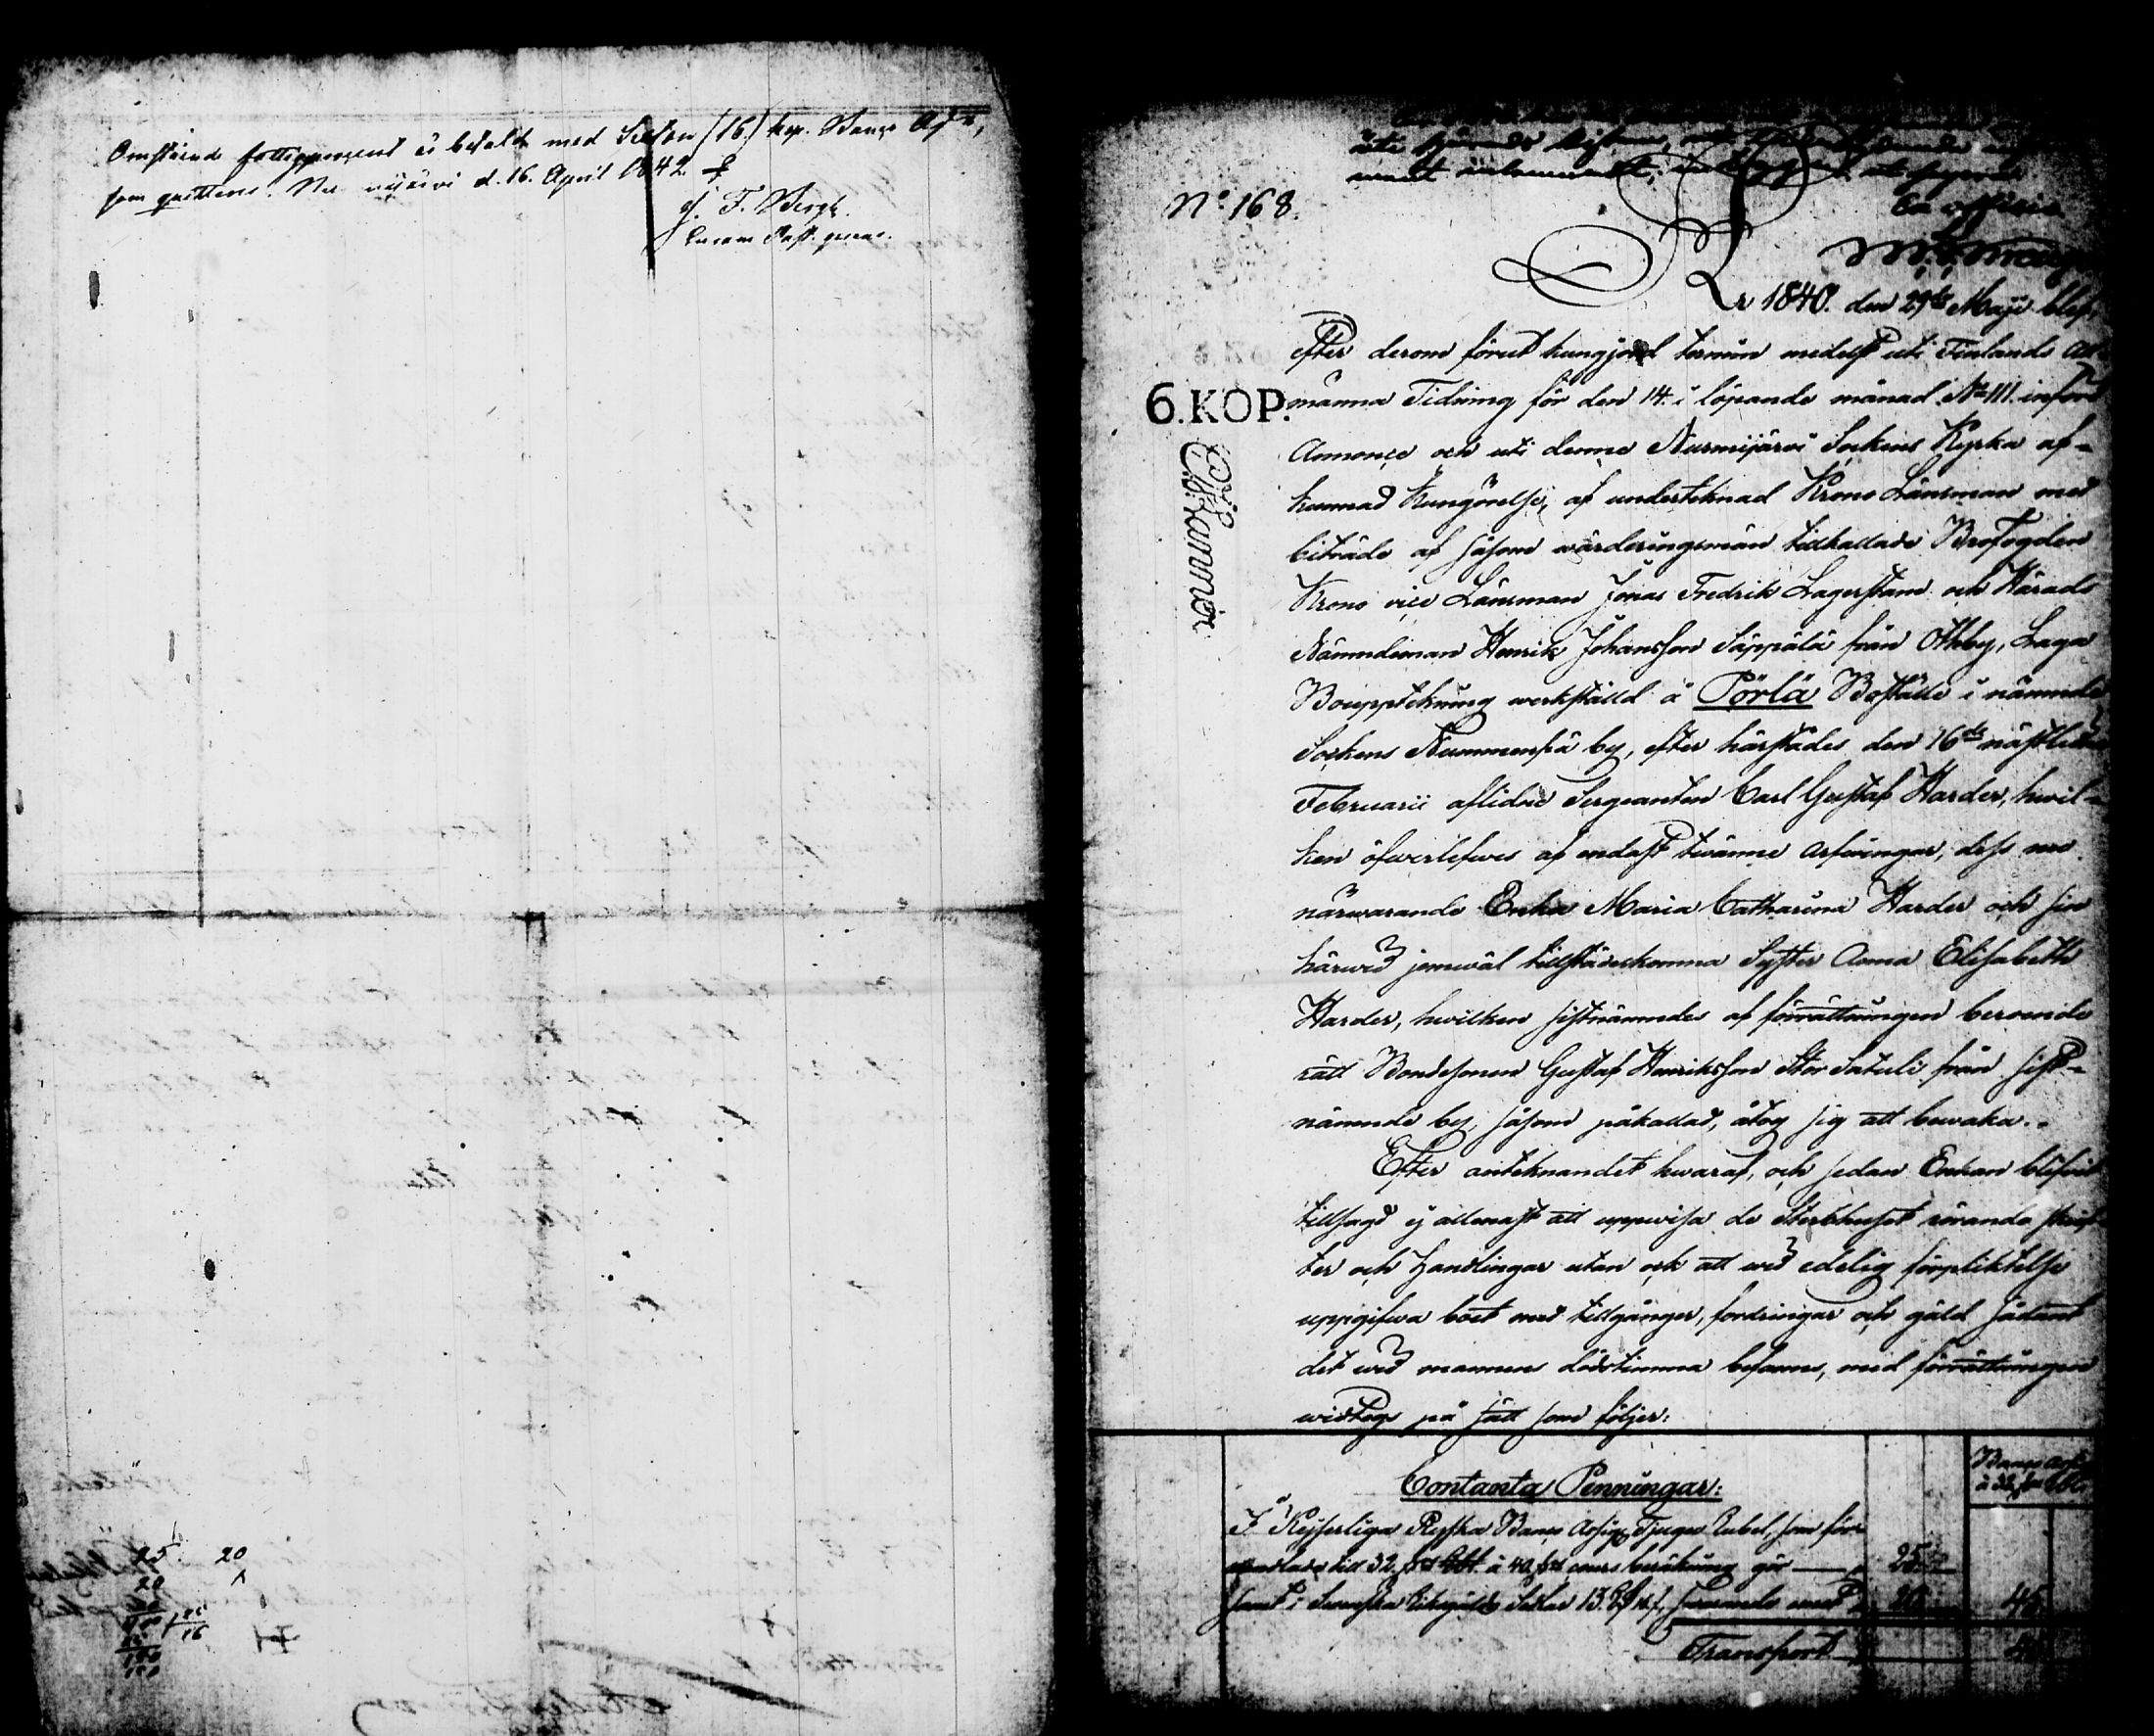 Omstående fattigprocent är betalt med Sexton (16) kop. Banco Ass:r,
som quitteras. Nurmijärvi d. 16. April 1842
J. F. Bergh.
25 20
20
No 168.
Ex officio
År 1840. den 29de Maji blef,
efter derom förut kungjord termin medelst uti Finlands All-
männa Tidning för den 14. i löpande månad No 111. införd
Annonce och uti denne Nurmijärvi Sockens Kyrka af-
kunnad Kungörelse, af undertecknad Krono Länsman med
biträde af såsom värderingsmän tillkallade Brofogden
Krono vice Länsman Jonas Fredrik Lagerstam och Härads
Nämndeman Henrik Johansson Säppälä från Othby, Laga
Boupptekning werkställd å Pörlä Boställe i nämnde
Sockens Nummenpä by, efter härstädes den 16de nästledne
Februarii aflidne Sergeanten Carl Gustaf Harder, hwil-
ken öfwerlefwes af endast twänne arfwingar, dess nu
närwarande Enka Maria Catharina Harder och sin
härwid jemwäl tillstädeskomna Syster Anna Elisabeth
Harder, hwilken sistnämndes af förrättningen beroende
rätt Bondesonen Gustaf Henriksson Stor Satuli från sist-
nämnde by, såsom påkallad, åtog sig att bewaka.
Efter antecknandet hwaraf, och sedan Enkan blifwit
tillsagd ej allenast att uppwisa de Sterbhuset rörande skrif-
ter och Handlingar utan ock att wid edelig förpliktelse
uppgifwa boet med tillgångar, fordringar och gäld sådant
det wid mannens dödstimma befanns, med förrättningen
widtogs på sätt som följer:
6.KOP.
Contanta Penningar:
Banco Ass
I Kejserliga Ryska Banco Assign. Tjugo Rubel, som för-
wandlade till 32 à 40 cours beräkning gör 25
samt i Swenska Riksgälds Sedlar 13. swarande emot 20 45
Transport